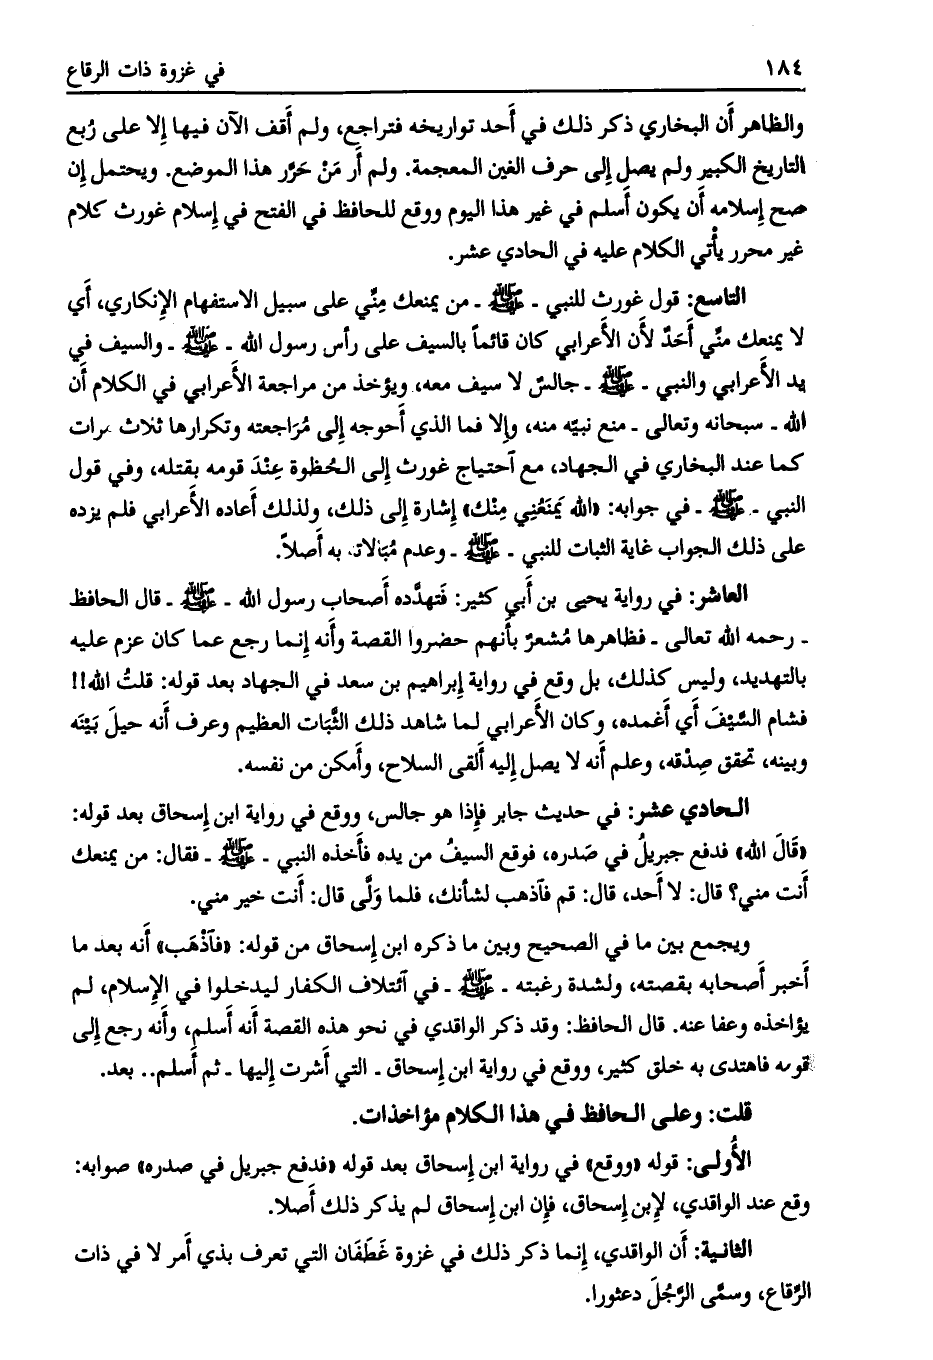 ١٨٤ في غزوة ذات الرقاع
والظاهر أَن البخاري ذكر ذلك في أَحد تواريخه فتراجع، ولم أَقف الآن فيها إِلا على رُبع
التاريخ الكبير ولم يصل إِلى حرف الغين المعجمة. ولم أَر مَنْ حَرَّر هذا الموضع. ويحتمل إِن
صح إِسلامه أَن يكون أَسلم في غير هذا اليوم ووقع للحافظ في الفتح في إِسلام غورث كلام
غير محرر يأْتي الكلام عليه في الحادي عشر.
التاسع: قول غورث للنبي ـ ﷺ ـ من يمنعك مِنِّي على سبيل الاستفهام الإِنكاري، أَي
لا يمنعك منِّي أَحَدٌ لأَن الأَعرابي كان قائماً بالسيف على رأس رسول الله ـ ﷺ ـ والسيف في
يد الأَعرابي والنبي ـ ﷺ ـ جالسٌ لا سيف معه، ويؤخذ من مراجعة الأَعرابي في الكلام أَن
الله ـ سبحانه وتعالى ـ منع نبيّه منه، وإِلا فما الذي أَحوجه إِلى مُرَاجعته وتكرارها ثلاث مرات
كما عند البخاري في الجهاد، مع آحتياج غورث إِلى الحظوة عِنْدَ قومه بقتله، وفي قول
النبي ـ ﷺ ـ في جوابه: «الله يَمنَعُنِي مِنْك» إِشارة إِلى ذلك، ولذلك أَعاده الأَعرابي فلم يزده
على ذلك الجواب غاية الثبات للنبي ـ ﷺ ـ وعدم مُبَالاته به أَصلاً.
العاشر: في رواية يحيى بن أَبي كثير: فَتهدَّده أَصحاب رسول الله ـ ﷺ ـ قال الحافظ
ـ رحمه الله تعالى ـ فظاهرها مُشعرٌ بأَنهم حضروا القصة وأَنه إِنما رجع عما كان عزم عليه
بالتهديد، وليس كذلك، بل وقع في رواية إِبراهيم بن سعد في الجهاد بعد قوله: قلتُ الله!!
فشام السَّيْفَ أَي أَغمده، وكان الأَعرابي لما شاهد ذلك الثَّبَات العظيم وعرف أَنه حيلَ بَيْنَه
وبينه، تحقق صِدْقه، وعلم أَنه لا يصل إِليه أَلقى السلاح، وأَمكن من نفسه.
الحادي عشر: في حديث جابر فإِذا هو جالس، ووقع في رواية ابن إِسحاق بعد قوله:
«قَالَ الله» فدفع جبريلُ في صَدره، فوقع السيفُ من يده فأَخذه النبي ـ ﷺ ـ فقال: من يمنعك
أَنت مني؟ قال: لا أَحد، قال: قم فآذهب لشأنك، فلما وَلَّى قال: أَنت خير مني.
ويجمع بين ما في الصحيح وبين ما ذكره ابن إِسحاق من قوله: «فآذْهَب» أَنه بعد ما
أَخبر أَصحابه بقصته، ولشدة رغبته ـ ﷺ ـ في آئتلاف الكفار ليدخلوا في الإِسلام، لم
يؤاخذه وعفا عنه. قال الحافظ: وقد ذكر الواقدي في نحو هذه القصة أَنه أَسلم، وأَنه رجع إِلى
قومه فاهتدى به خلق كثير، ووقع في رواية ابن إِسحاق ـ التي أَشرت إِليها ـ ثم أَسلم.. بعد.
قلت: وعلى الحافظ في هذا الكلام مؤاخذات.
الأُولى: قوله «ووقع» في رواية ابن إِسحاق بعد قوله «فدفع جبريل في صدره» صوابه:
وقع عند الواقدي، لإِبن إِسحاق، فإِن ابن إِسحاق لم يذكر ذلك أَصلا.
الثانية: أَن الواقدي، إِنما ذكر ذلك في غزوة غَطَفَان التي تعرف بذي أَمر لا في ذات
الرِّقاع، وسمَّى الرَّجُلَ دعثورا.